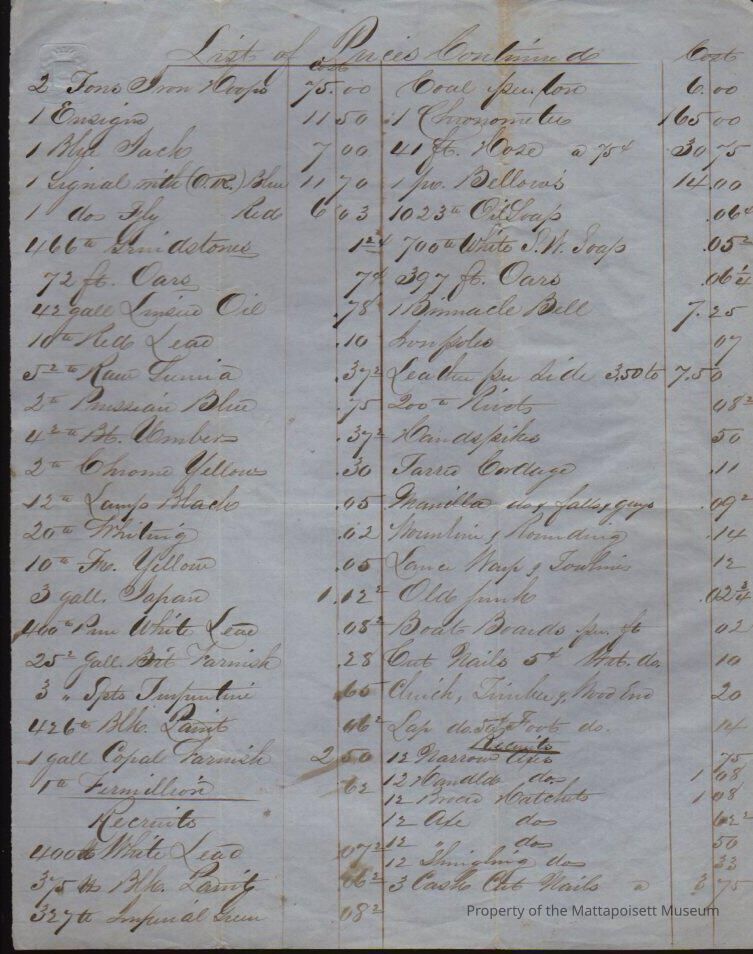 List of Prices Continued
Cost
2 Tons Iron Hoops 75.00
1 Ensign 11 50
1 Blue Jack 7 00
1 Signal with (O.R.) Blue 11 70
1 do Fly Red 6 03
466 lb Grindstones 1 2/4
72 ft. Oars 7 ¢
42 gall Linseed Oil .78
10 lb Red Lead .10
5 2 lb Raw Sienna .37 2
2 lb Prussian Blue .75
4 2 lb Bt. Umber .37 2
2 lb Chrome Yellow .30
12 lb Lamp Black .05
20 lb Whiting .02
10 lb Fr. Yellow .05
3 gall. Japan 1.12 2
400 lb Pure White Lead .08 2
25 2 gall. Brt Varnish .28
3 " Spts Turpentine 65
426 lb Blk. Paint 06 2
1 gall Copal Varnish 2 50
1 lb Vermillion 62
Recruits
400 lb White Lead .07 2
375 lb Blk. Paint 06 2
327 lb Imperial Green 08 2
Cost
Coal per ton 6.00
1 Chronometer 165 00
41 ft. Hose a 75¢ 30 75
1 pr. Bellows 14.00
1023 lb Oil Soap .06
700 lb White S.W. Soap .05 2
397 ft. Oars .06 1/4
1 Binnacle Bell 7.25
Iron poles 07
Leather per side 3,50 to 7.50
200 lb Rivets 08 2
Handspikes 50
Tarred Cordage .11
Manilla do, falls, guys .09 2
Houseline & Rounding .14
Lance Warp & Towlines 12
Old junk .02 3/4
Boat Boards per. ft 02
Cut Nails 5¢ Wrt. do. 10
Clinch, Timber, Wood End 20
Lap do. Foot do. 14
Recruits
12 Narrow Axes 75
12 Handled do 1 08
12 Broad Hatchets 1 08
12 Axe do 62 2
12 " do 50
12 Shingling do 33
3 Cask Cut Nails a 3 75
Property of the Mattapoisett Museum